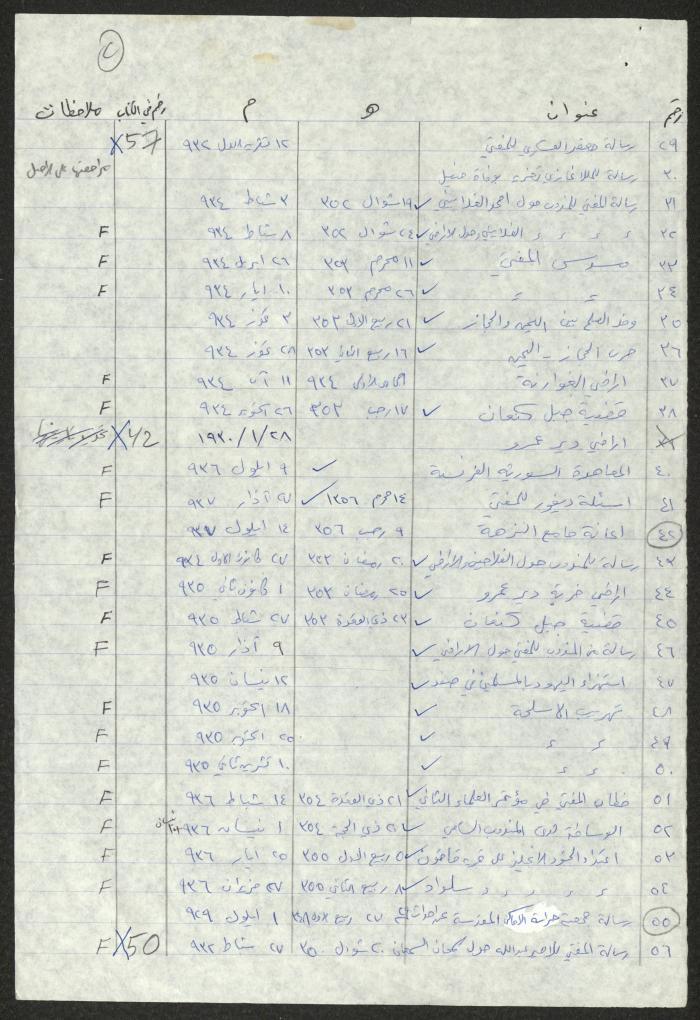 ٢
رقم عنوان هـ م رقم في الكتاب ملاحظات
٢٩ رسالة جعفر العسكري للمفتي ١٢ تشرين الاول ٩٣٢ X57
٣٠ رسالة للملا غازي تعزية بوفاة فيصل مراجعتها على الاصل
٣١ رسالة المفتي للمندوب حول ✓ ١٩ شوال ٣٥٢ ٣ شباط ٩٣٤
٣٢ ״ ״ ״ ״ حول الاراضي ✓ ٢٤ شوال ٣٥٢ ٨ شباط ٩٣٤ F
٣٣ المفتي ✓ ١١ محرم ٣٥٣ ٢٦ ابريل ٩٣٤ F
٣٤ ״ ״ ✓ ٢٦ محرم ٣٥٣ ١٠ ايار ٩٣٤ F
٣٥ وفد الصلح بين اليمن والحجاز ✓ ٢١ ربيع الاول ٣٥٣ ٣ تموز ٩٣٤
٣٦ حرب الحجاز - اليمن ✓ ١٦ ربيع الثاني ٣٥٣ ٢٨ تموز ٩٣٤
٣٧ اراضي الغوارنة ٩٣٤ ١١ آب ٩٣٤ F
٣٨ قضية جبل كنعان ✓ ١٧ رجب ٣٥٣ ٢٦ اكتوبر ٩٣٤ F
اراضي دير عمرو ١٩٣٠/١/٢٨ X42
٤٠ المعاهدة السورية الفرنسية ✓ ٩ ايلول ٩٣٦ F
٤١ اسئلة للمفتي ✓ ١٤ محرم ١٣٥٦ آذار ٩٣٧ F
٤٢ اعانة جامع النزهة ٩ رجب ٣٥٦ ١٤ ايلول ٩٣٧
٤٣ رسالة للمندوب حول الفلاحين والاراضي ✓ ٢٠ رمضان ٣٥٣ ٢٧ كانون الاول ٩٣٤ F
٤٤ اراضي خربة دير عمرو ✓ ٢٥ رمضان ٣٥٣ ١ كانون ثاني ٩٣٥ F
٤٥ قضية جبل كنعان ✓ ٢٣ ذي القعدة ٣٥٣ ٢٧ شباط ٩٣٥ F
٤٦ رسالة من المندوب للمفتي حول الاراضي ✓ ٩ آذار ٩٣٥ F
٤٧ استهزاء اليهود بالمسلمين في صفد ✓ ١٢ نيسان ٩٣٥
٤٨ تهريب الاسلحة ✓ ١٨ اكتوبر ٩٣٥ F
٤٩ ״ ״ ✓ ٢٥ اكتوبر ٩٣٥ F
٥٠ ״ ״ ✓ ١٠ تشرين ثاني ٩٣٥ F
٥١ خطاب المفتي في مؤتمر العلماء الثاني ✓ ٢١ ذي القعدة ٣٥٤ ١٤ شباط ٩٣٦ F
٥٢ المندوب السامي ✓ ذي الحجة ٣٥٤ ١ نيسان ٩٣٦ F
٥٣ اعتداء الجنود الانجليز على قرية ✓ ٥ ربيع الاول ٣٥٥ ٢٥ ايار ٩٣٦ F
٥٤ ״ ״ ״ ״ سلواد ✓ ٨ ربيع الثاني ٣٥٥ ٢٧ حزيران ٩٣٦ F
٥٥ رسالة جمعية حراسة الاماكن المقدسة ٢٧ ربيع ١ ايلول ٩٢٩
٥٦ رسالة المفتي للامير عبدالله حول ٢٠ شوال ٣٥٠ ٢٧ شباط ٩٣٢ X50 F